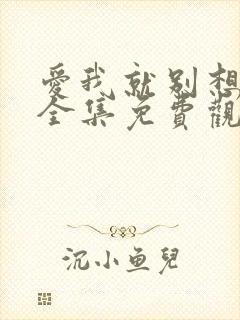 愛我就别想
全集免費觀
沉小鱼兒